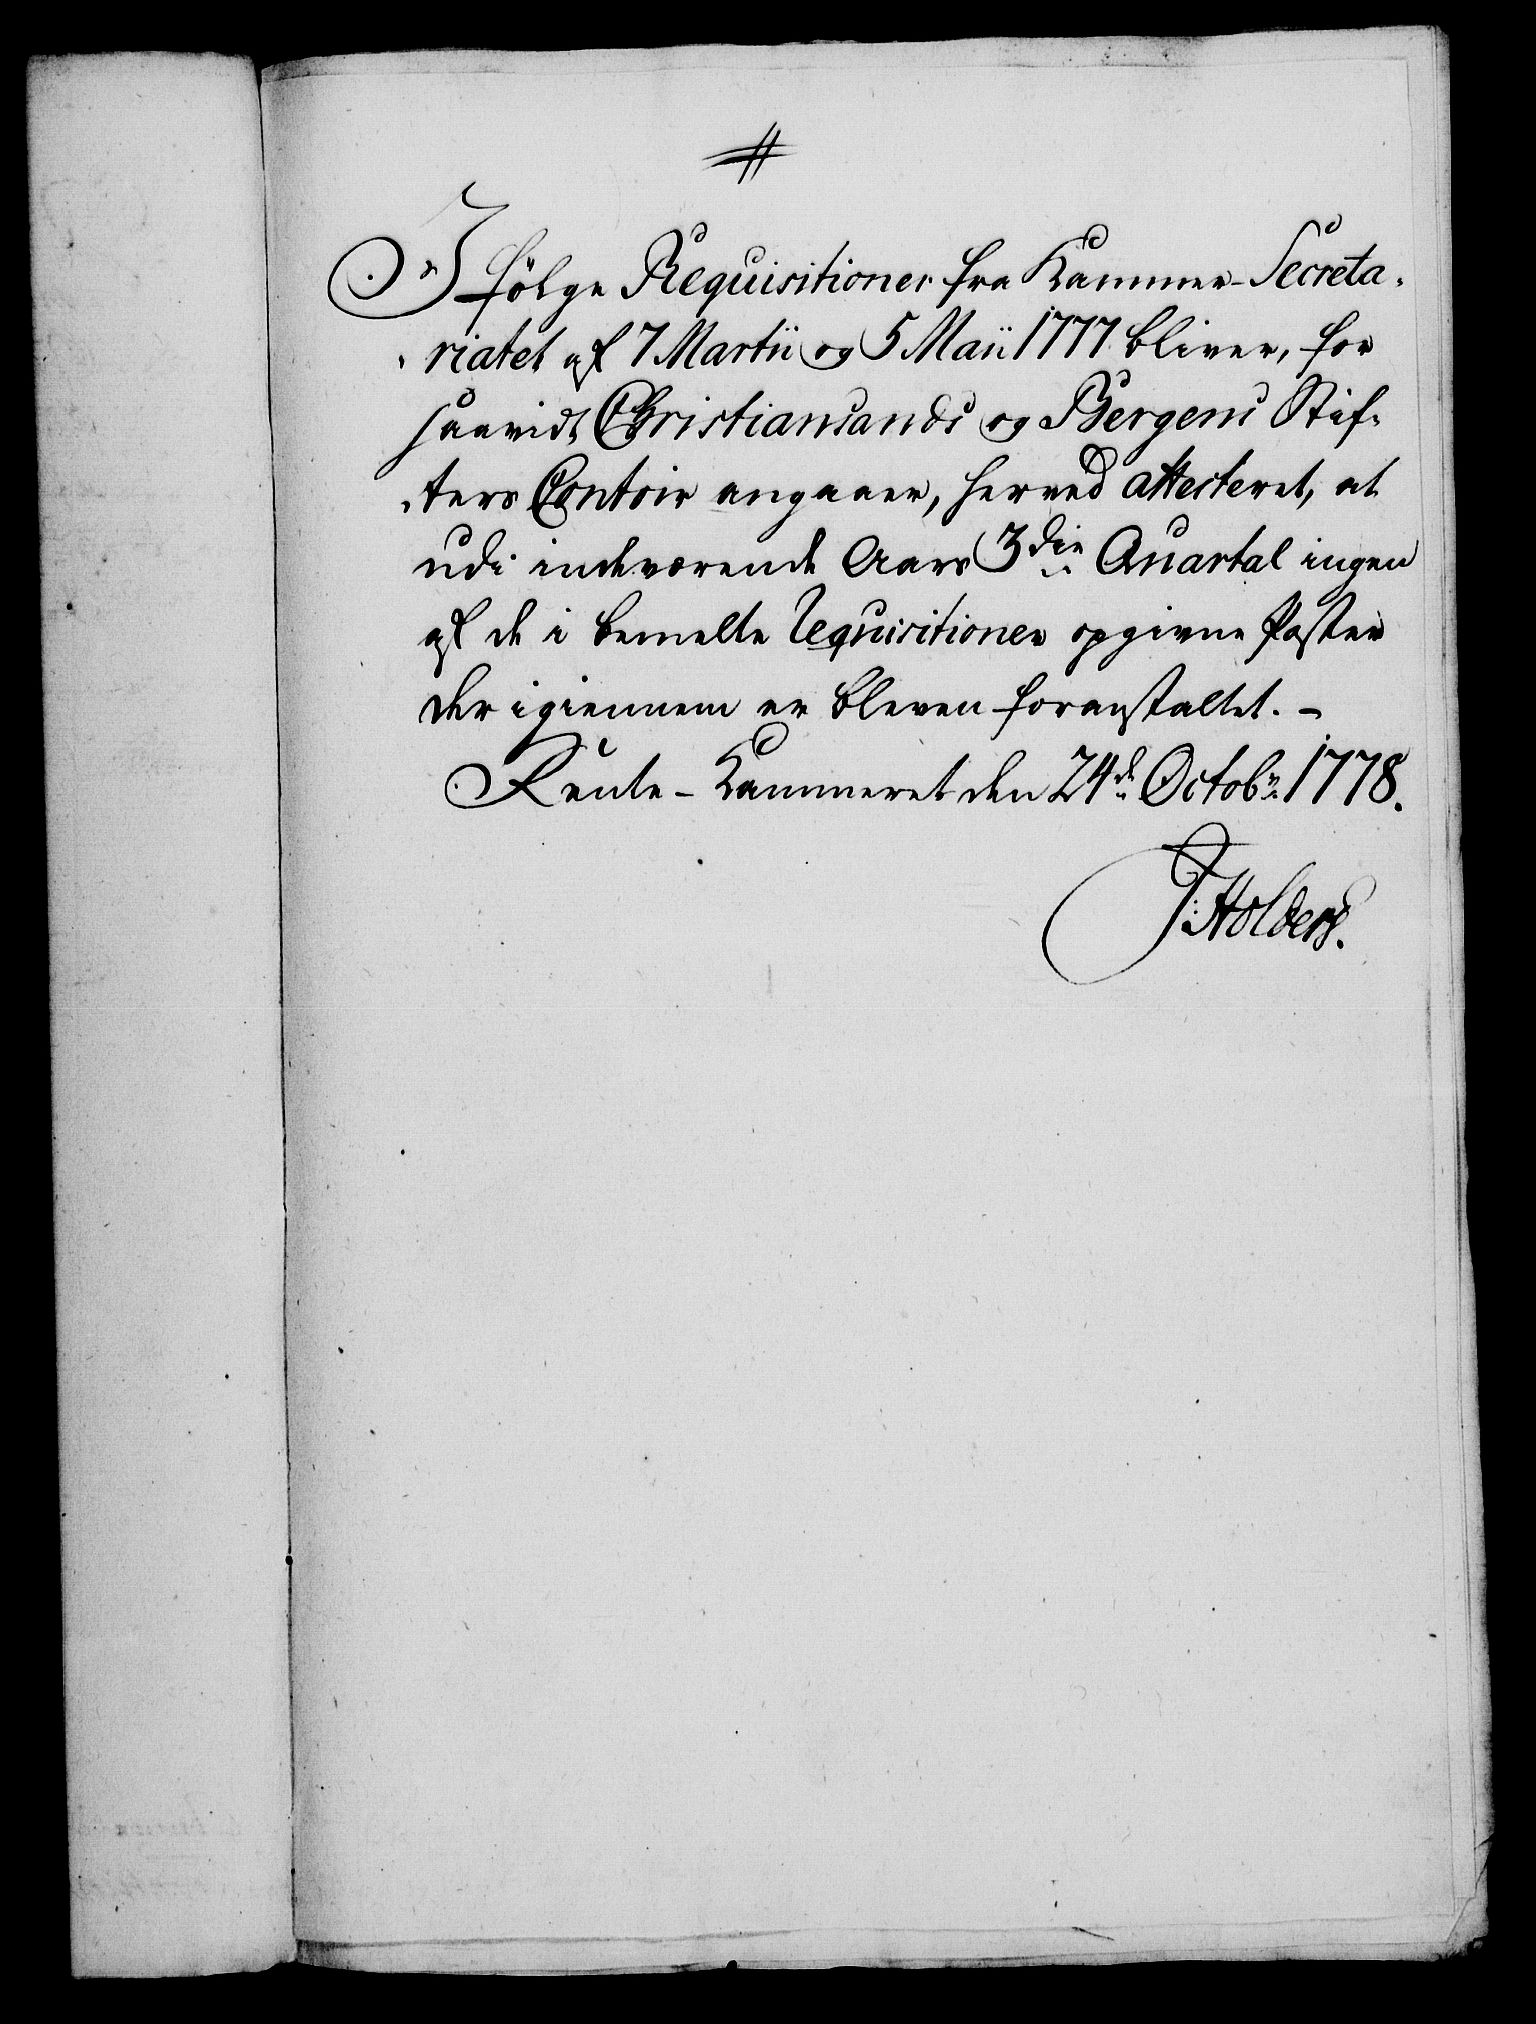 #
I følge Requisitioner fra Kammer-Secreta-
riatet af 7 Martii og 5 Maii 1777 bliver, for
saavidt Christiansands og Bergens Stif-
ters Contoir angaaer, herved attesteret, at
udi indeværende Aars 3die Quartal ingen
af de i bemelte Requisitioner opgivne Poster
der igiennem er bleven foranstaltet. -
Rente-Kammeret den 24de Octobr 1778.
J: Holders.